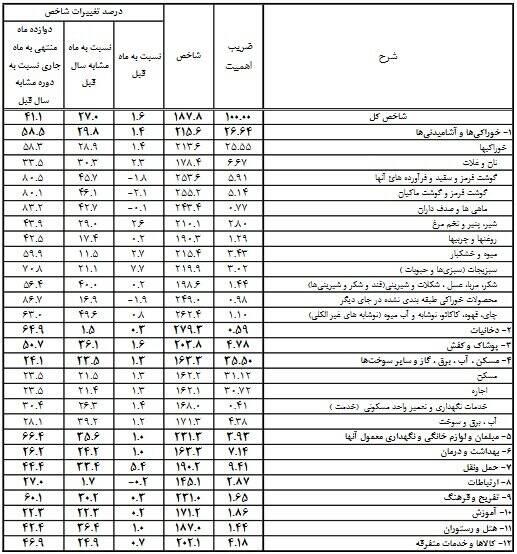 شرح ضریب اهمیت شاخص درصد تغییرات شاخص
نسبت به ماه قبل نسبت به ماه مشابه سال قبل دوازده ماه منتهی به ماه جاری نسبت به دوره مشابه سال قبل
شاخص کل ۱۰۰.۰۰ ۱۸۷.۸ ۱.۶ ۲۷.۰ ۴۱.۱
۱- خوراکی‌ها و آشامیدنی‌ها ۲۶.۶۴ ۲۱۵.۶ ۱.۴ ۲۹.۸ ۵۸.۵
خوراکیها ۲۵.۵۵ ۲۱۳.۶ ۱.۴ ۲۸.۹ ۵۸.۳
نان و غلات ۶.۶۷ ۱۷۸.۴ ۲.۳ ۳۰.۳ ۳۳.۵
گوشت قرمز و سفید و فرآورده های آنها ۵.۹۱ ۲۵۳.۶ -۱.۸ ۴۵.۷ ۸۰.۵
گوشت قرمز و گوشت ماکیان ۵.۱۴ ۲۵۵.۲ -۲.۱ ۴۶.۱ ۸۰.۱
ماهی ها و صدف داران ۰.۷۷ ۲۴۳.۴ -۰.۱ ۴۲.۷ ۸۳.۲
شیر، پنیر و تخم مرغ ۲.۸۰ ۲۱۰.۱ ۲.۶ ۲۹.۰ ۴۳.۹
روغنها و چربیها ۱.۲۹ ۱۹۰.۳ ۰.۲ ۱۷.۴ ۴۲.۵
میوه و خشکبار ۳.۴۳ ۲۱۵.۴ ۲.۷ ۱۱.۵ ۵۹.۹
سبزیجات (سبزی‌ها و حبوبات) ۳.۰۲ ۲۱۹.۹ ۷.۷ ۲۱.۱ ۷۰.۸
شکر، مربا، عسل، شکلات و شیرینی(قند و شکر و شیرینی‌ها) ۱.۴۴ ۱۹۸.۶ ۰.۲ ۴۰.۰ ۵۶.۴
محصولات خوراکی طبقه بندی نشده در جای دیگر ۰.۹۸ ۲۴۹.۰ -۱.۹ ۱۶.۹ ۸۶.۷
چای، قهوه، کاکائو، نوشابه و آب میوه (نوشابه های غیر الکلی) ۱.۱۰ ۲۶۲.۴ ۰.۸ ۴۹.۶ ۶۳.۰
۲- دخانیات ۰.۵۹ ۲۷۹.۳ ۰.۳ ۱.۵ ۶۴.۹
۳- پوشاک و کفش ۴.۷۸ ۲۰۳.۸ ۱.۶ ۳۶.۱ ۵۰.۷
۴- مسکن، آب، برق، گاز و سایر سوخت‌ها ۳۵.۵۰ ۱۶۳.۳ ۱.۳ ۲۳.۵ ۲۴.۱
مسکن ۳۱.۱۲ ۱۶۲.۲ ۱.۳ ۲۱.۵ ۲۳.۵
اجاره ۳۰.۷۲ ۱۶۲.۱ ۱.۳ ۲۱.۴ ۲۳.۵
خدمات نگهداری و تعمیر واحد مسکونی (خدمت) ۰.۴۱ ۱۶۸.۰ ۱.۴ ۲۶.۳ ۳۰.۴
آب، برق و سوخت ۴.۳۸ ۱۷۱.۳ ۱.۲ ۳۹.۲ ۲۸.۱
۵- مبلمان و لوازم خانگی و نگهداری معمول آنها ۳.۹۳ ۲۳۱.۳ ۱.۰ ۳۵.۶ ۶۶.۴
۶- بهداشت و درمان ۷.۱۴ ۱۶۳.۳ ۱.۰ ۲۴.۲ ۲۶.۲
۷- حمل ونقل ۹.۴۱ ۱۹۰.۲ ۵.۴ ۳۳.۴ ۴۴.۴
۸- ارتباطات ۲.۸۷ ۱۴۵.۱ -۰.۲ ۱.۷ ۲۷.۰
۹- تفریح و فرهنگ ۱.۶۵ ۲۲۱.۰ ۰.۳ ۳۰.۲ ۶۰.۱
۱۰- آموزش ۱.۸۶ ۱۷۱.۲ ۰.۲ ۲۲.۳ ۲۲.۳
۱۱- هتل و رستوران ۱.۴۴ ۱۸۷.۰ ۱.۰ ۳۶.۴ ۴۲.۴
۱۲- کالاها و خدمات متفرقه ۴.۱۸ ۲۰۲.۱ ۰.۷ ۲۴.۹ ۴۶.۹